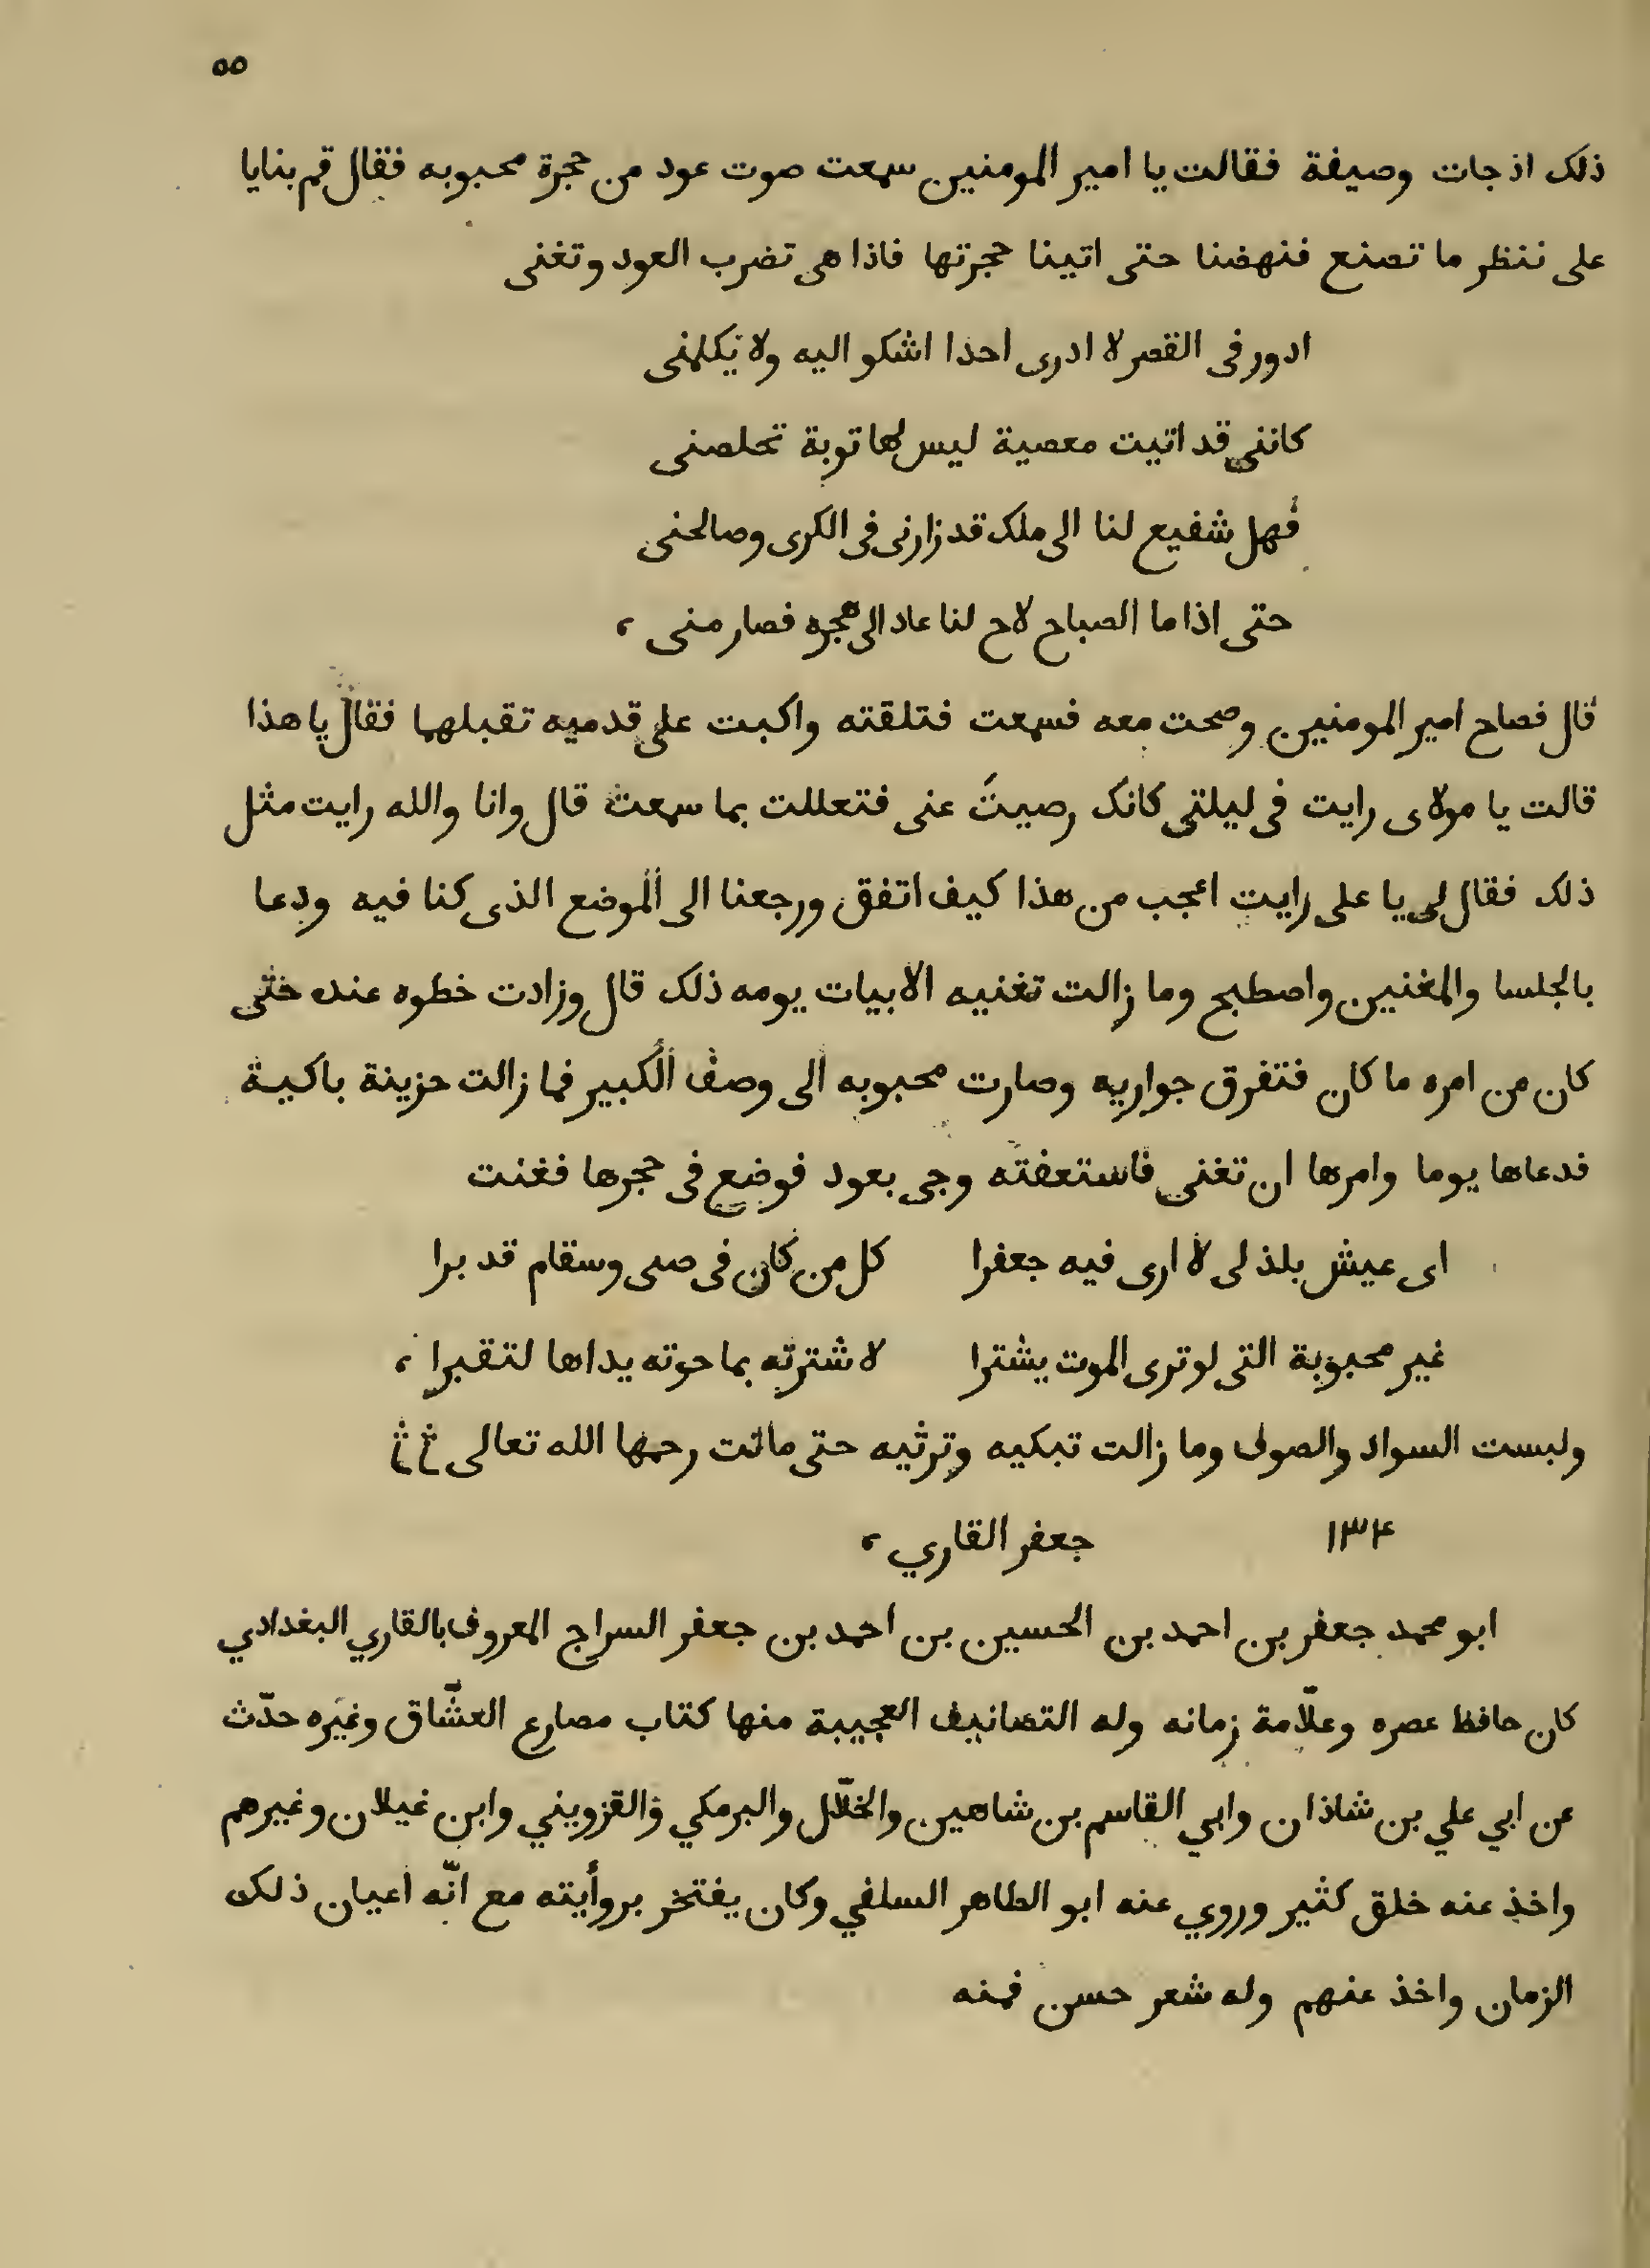 ٥٥
ذلك اذ جات وصيفة فقالت يا امير المومنين سمعت صوت عود من حجرة محبوبه فقال قم بنايا
على ننظر ما تصنع فنهضنا حتى اتينا حجرتها فاذا هى تضرب العود وتغنى
ادور فى القصر لا ادرى احذا اشكو اليه ولا يكلمنى
كاننى قد اتيت معصية ليس لها توبة تخلصنى
فهل شفيع لنا الى ملك قد زارنى فى الكرى وصالحنى
حتى اذا ما الصباح لاح لنا عاد الى هجره فصار منى ،
قال فصاح امير المومنين وصحت معه فسمعت فتلقته واكبت على قدميه تقبلهما فقال يا هذا
قالت يا مولاى رايت فى ليلتى كانك رصيتَ عنى فتعللت بما سمعت قال وانا والله رايت مثل
ذلك فقال لى يا على رايت اعجب من هذا كيف اتفق ورجعنا الى الموضع الذى كنا فيه ودعا
بالجلسا والمغنين واصطبح وما زالت تغنيه الابيات يومه ذلك قال وزادت خطوه عنده حتى
كان من امره ما كان فتفرق جواريه وصارت محبوبه الى وصف الكبير فما زالت حزينة باكية
فدعاها يوما وامرها ان تغنى فاستعفته وجى بعود فوضع فى حجرها فغنت
اى عيش بلذ لى لا ارى فيه جعفرا كل من كان فى صى وسقام قد برا
غير محبوبة التى لو ترى الموت يشترا لا شترته بما حوته يداها لتقبرا ،
ولبست السواد والصوف وما زالت تبكيه وترثيه حتى ماتت رحمها الله تعالى
١٣٤ جعفر القاري ،
ابو محمد جعفر بن احمد بن الحسين بن احمد بن جعفر السراج المعروف بالقاري البغدادي
كان حافظ عصره وعلّامة زمانه وله التصانيف العجيبة منها كتاب مصارع العشّاق وغيره حدّث
عن ابي علي بن شاذان وابي القاسم بن شاهين والخلّال والبرمكي والقزويني وابن غيلان وغيرهم
واخذ عنه خلق كثير وروي عنه ابو الطاهر السلفي وكان يفتخر بروأيته مع انّه اعيان ذلك
الزمان واخذ عنهم وله شعر حسن فمنه